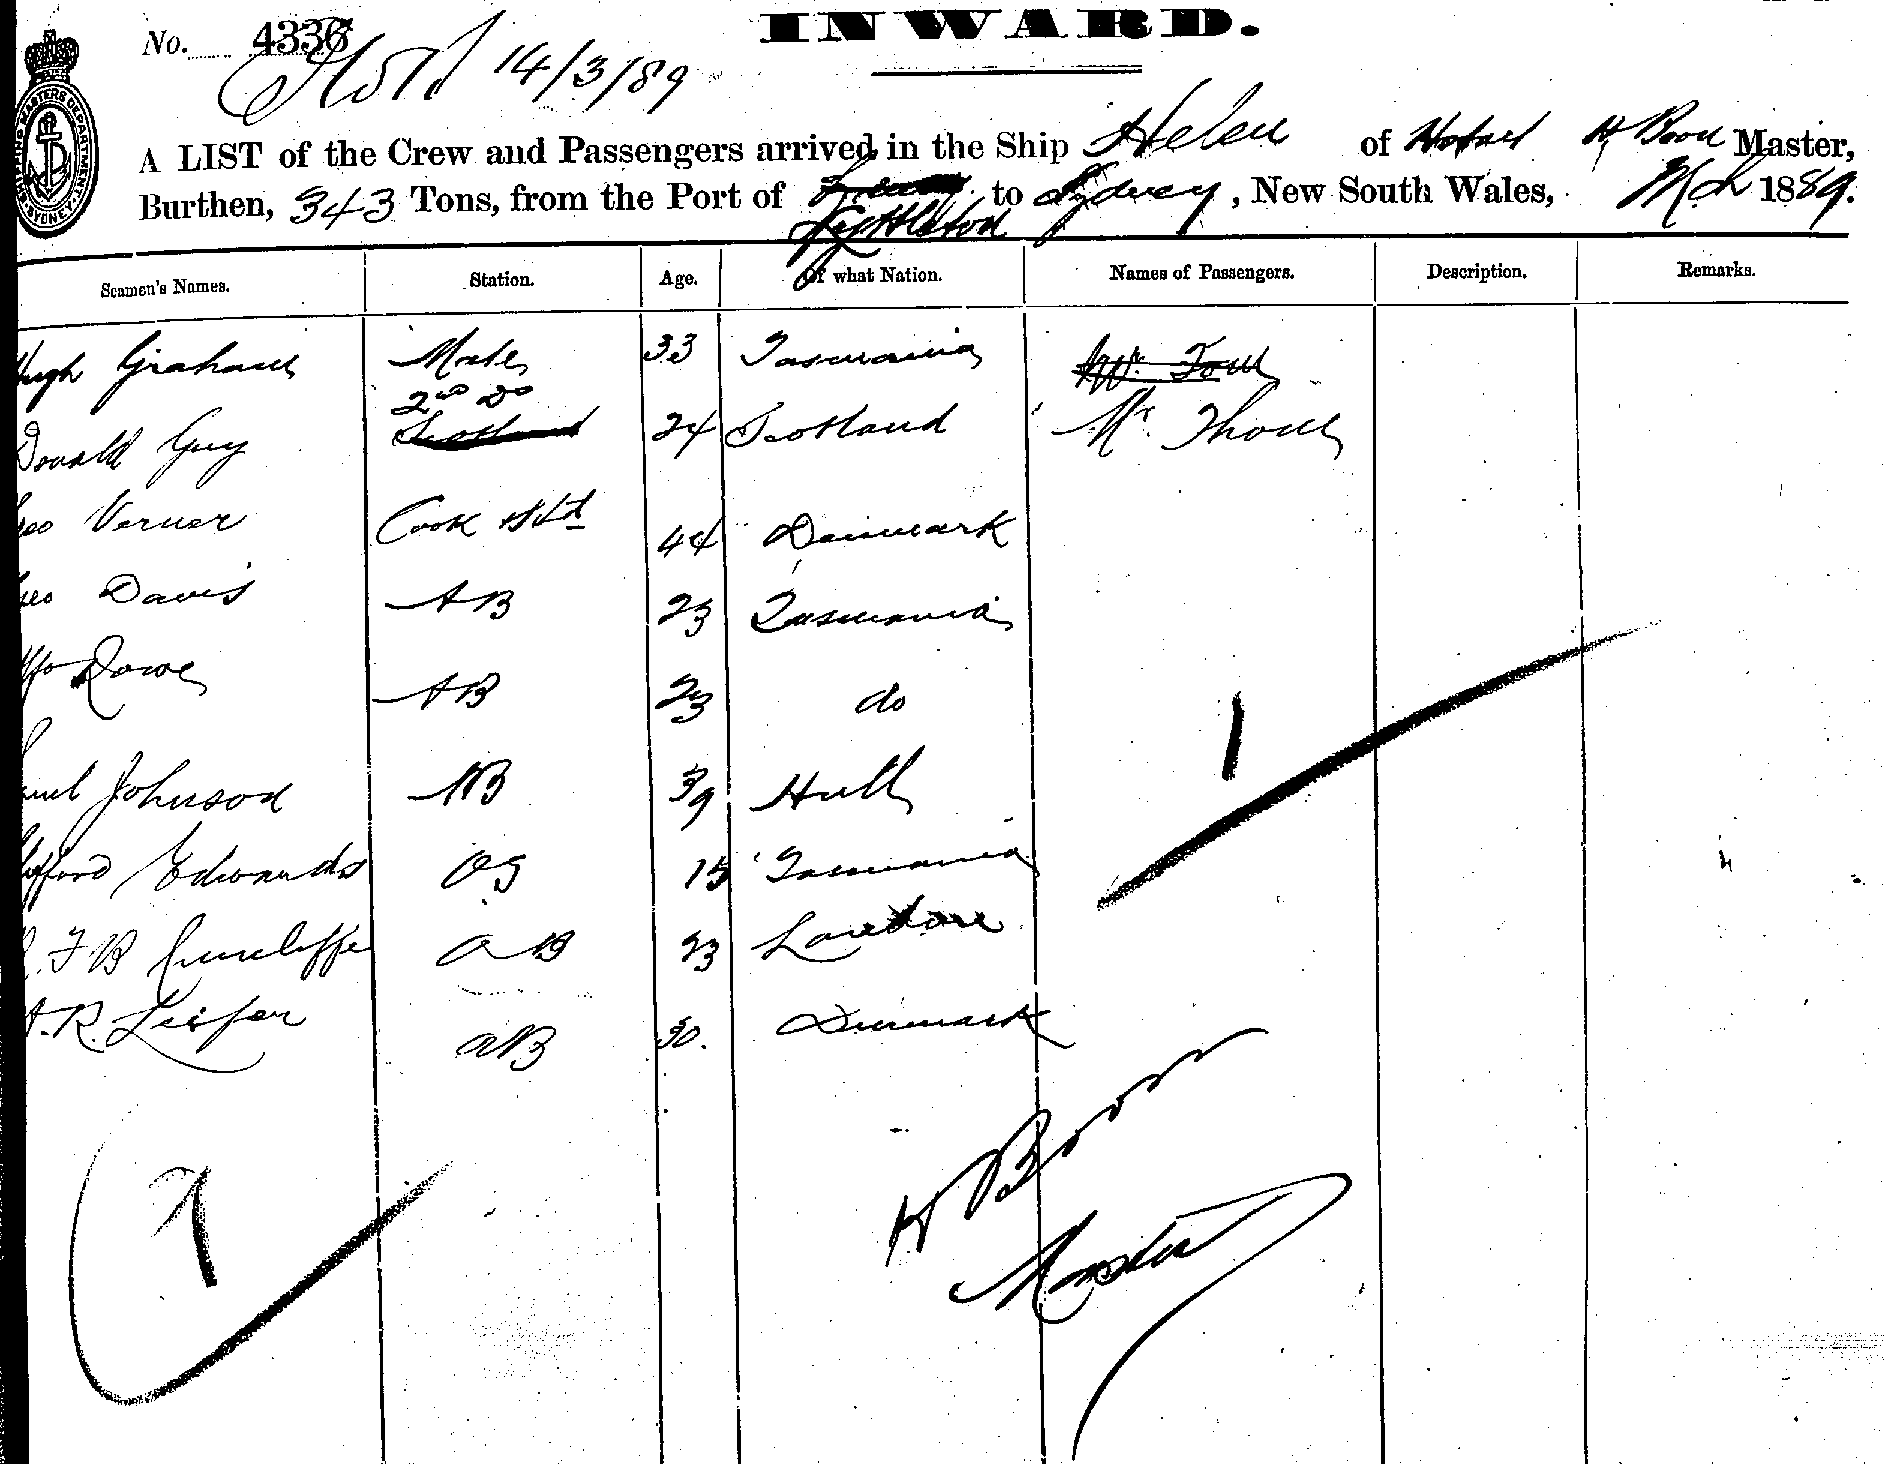 INWARD.
No. 4336
14/3/89
A LIST of the Crew and Passengers arrived in the Ship Helen of Hobart H Boon Master,
Burthen, 343 Tons, from the Port of to Sydney, New South Wales, Mch 1889.
Lyttleton
Seamen's Names. Station. Age. Of what Nation. Names of Passengers. Description. Remarks.
Hugh Graham Mate 33 Tasmania
2nd Do
Donald Guy Scotland 24 Scotland Mr.
Geo Verner Cook & Std 44 Denmark
Geo Davis AB 23 Tasmania
Rowe AB 23 do
Johnson AB 39 Hull
Edwards OS 15 Tasmania
F B Cunliffe AB 23
A. R. Leifer AB 30. Denmark
1
9
H Boon
Master